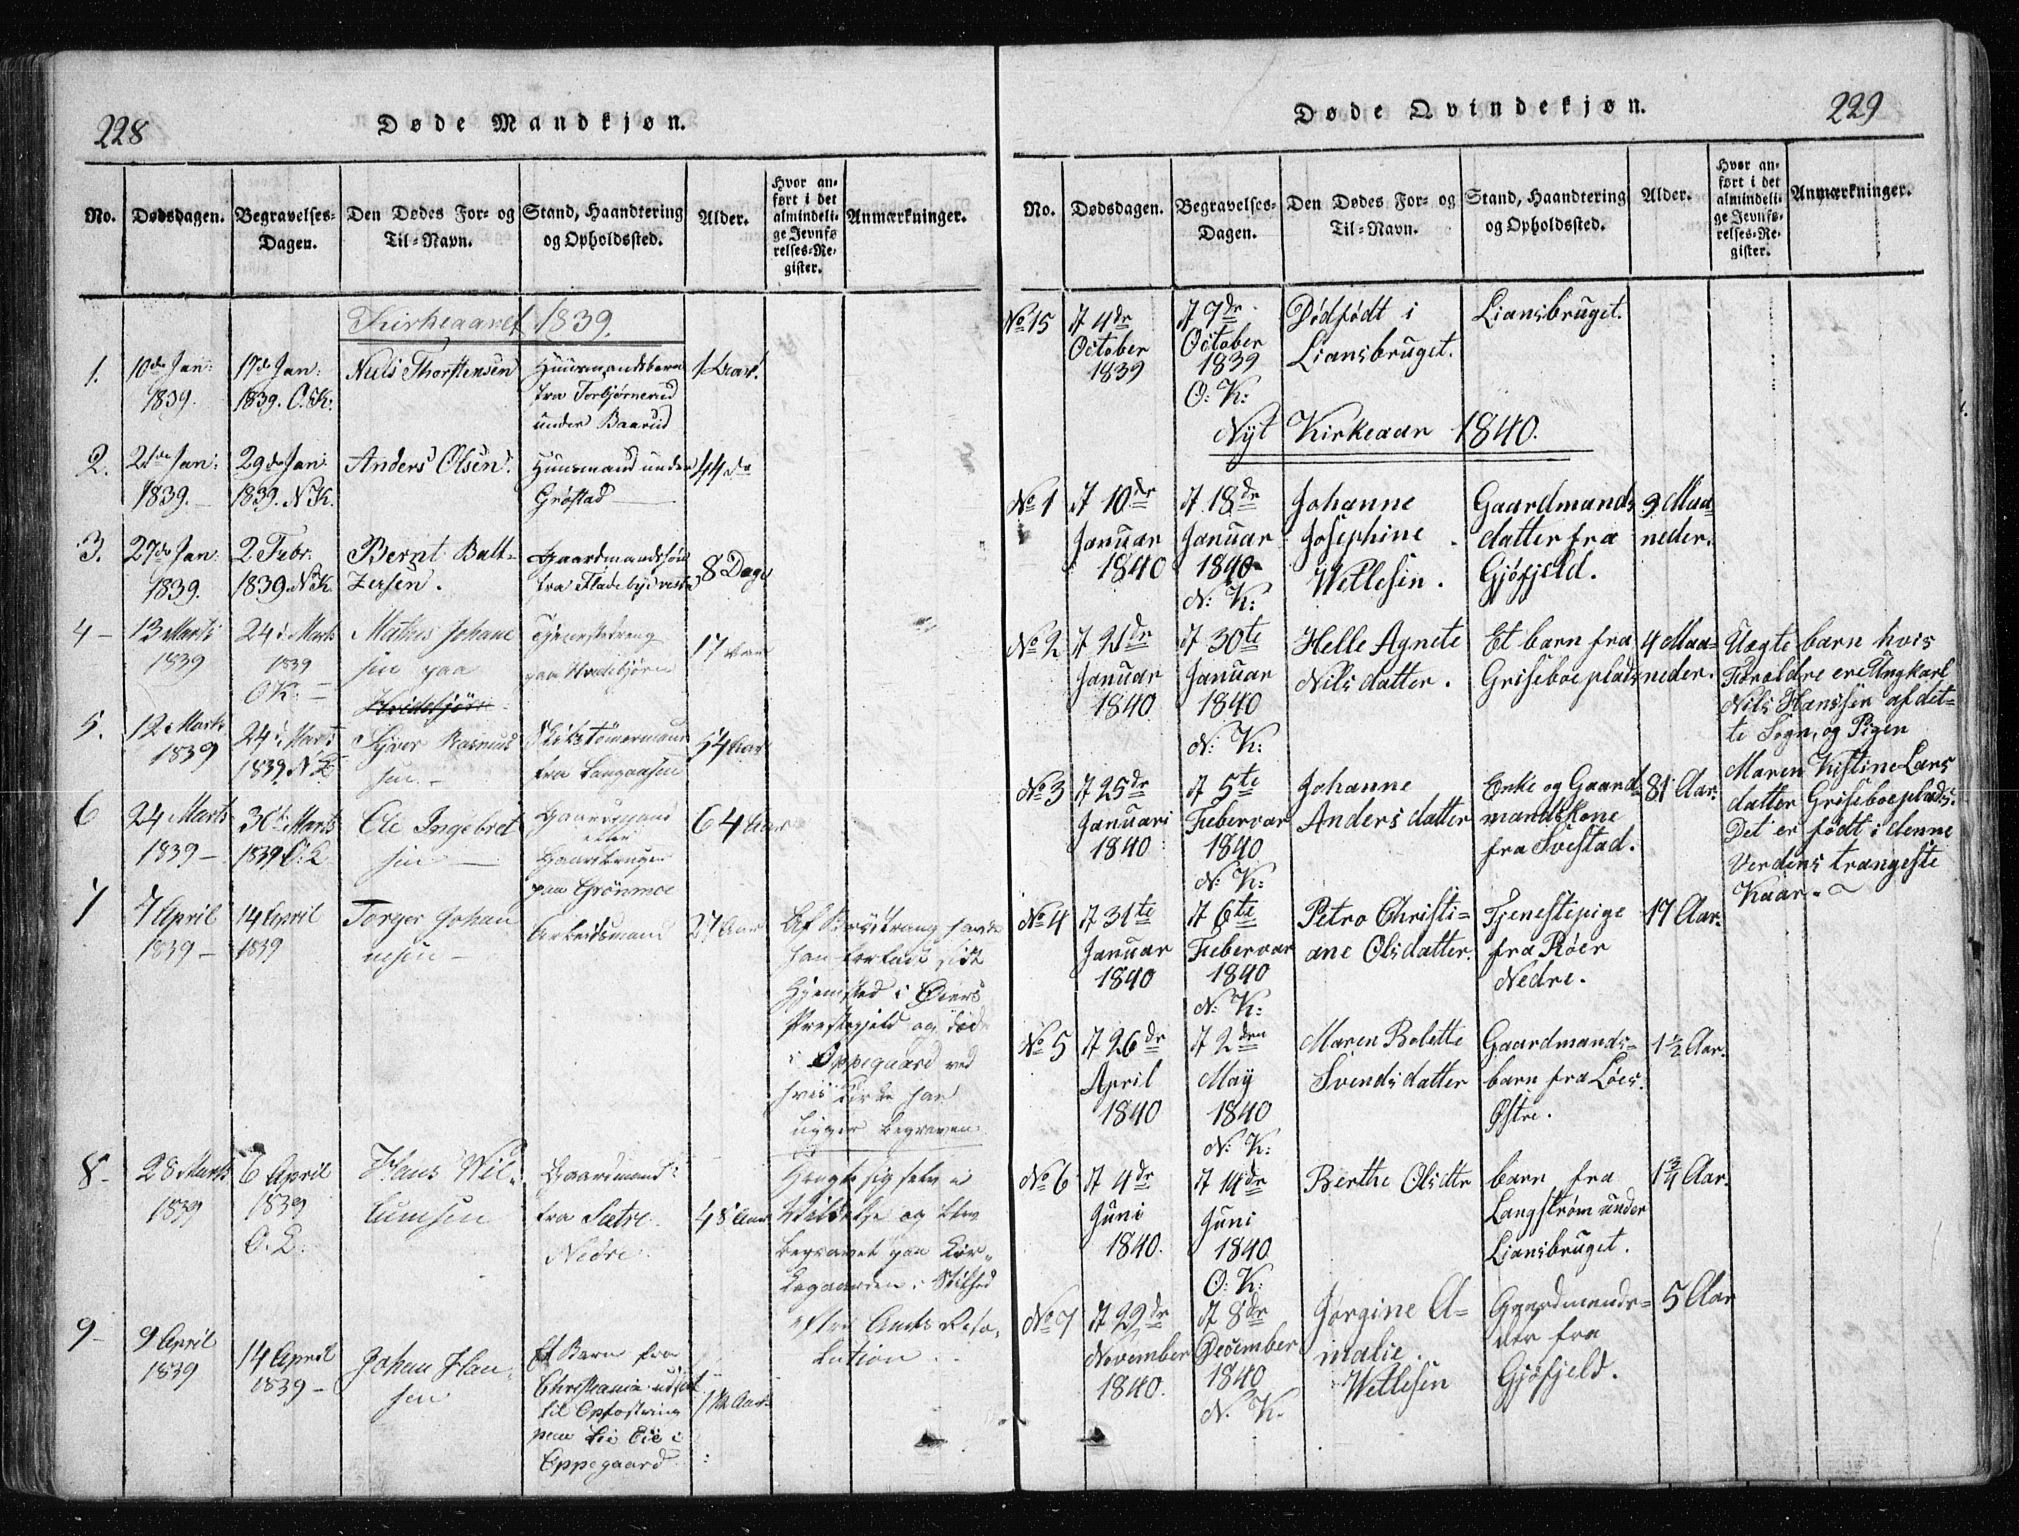 228
Døde Mandkjøn.
No.
Dødsdagen.
Begravelses-
Dagen.
Den Dødes For- og
Til-Navn.
Stand, Haandtering
og Opholdssted.
Alder.
Hvor an-
ført i det
almindeli-
ge Jevnfø
relses-Re-
gister.
Anmærkninger.
Kirkeaaret 1839.
1.
10de Jan:
1839.
17de Jan:
1839. O.K:
Niels Thorstensen
Huusmandsbarn
fra Torbjørnerud
under Baarud
1 Aar.
2.
21de Jan:
1839.
29de Jan:
1839. N.K.
Anders Olsen.
Huusmand under
Grøstad
44 do
3.
27de Jan:
1839.
2 Febr:
1839. N.K.
Bernt Balt-
zersen.
Gaardmandssøn
fra Fladebye
8 Dage
4-
13 Marts
1839
24d Marts
1839
O.K: -
Mathis Johane
sen paa
Hvidebjørn
Tjenestedreng
paa Hvidebjørn
17 Aar
5.
12 Marts
1839
24d Marts
1839 N.K
Rasmus
sen -
Skibstømermand
fra Langaasen
54 Aar
6
24 Marts
1839 -
30d Marts
1839 O:K
Ole Ingebret
sen
Gaardmand
eller
Gaardbruger
paa Grønmoe
64 Aar
7
7 April
1839 -
14 April
1839
Torger Johan
nesen -
Arbeidsmand
27 Aar
Af Brødtrang havde
han forladt sidt
Hjemsted i Øiers
Prestegjeld og døde
i Oppegaard ved
hvis Kirke han
ligger begraven.
8-
28 Marts
1839
6 April
1839
O.K:
Hans Wil-
lumsen
Gaardmand
fra Sætre
Nedre
48 Aar
Hengte sig selv i
Vildelse og blev
begravet paa Kir-
kegaarden i Stilhed
efter Amts Reso-
lution.
9-
9 April
1839
14 April
1839 -
Johan Han-
sen
Et Barn fra
Christiania udsat
til Opfostring
paa Lie Eie i
Oppegaard
1 1/2 Aar
229
Døde Qvindekjøn.
No.
Dødsdagen.
Begravelses-
Dagen.
Den Dødes For- og
Til-Navn.
Stand, Haandtering
og Opholdssted.
Alder.
Hvor an-
ført i det
almindeli-
ge Jevnfø-
relses-Re-
gister.
Anmærkninger.
No 15
d 4de
October
1839
d 9de
October
1839
O: K:
Dødfødt i
Liansbruget.
Liansbruget.
Nyt Kirkeaar 1840.
No 1
d 10de
Januar
1840
d 18de
Januar
1840
N: K:
Johanne
Josephine
Wetlesen.
Gaardmands
datter fra
Gjøfjeld.
9 Maa-
neder.
No 2
d 21de
Januar
1840
d 30te
Januar
1840
N: K:
Helle Agnete
Nilsdatter.
Et barn fra
Griseboeplads
4 Maa-
neder.
Uægte barn hvis
Foraldre ere Ungkarl
Nils Hanssen af det-
te Sogn, og Pigen
Maren Kistine Lars
datter Griseboeplads.
Det er født i denne
Verdens trangeste
Kaar.
No 3
d 25de
Januari
1840
d 5te
Februar
1840
N: K:
Johanne
Andersdatter
Enke og Gaard-
mandskone
fra Svestad.
81 Aar.
No 4
d 31te
Januar
1840
d 6te
Februar
1840
N: K:
Petro Christi-
ane Olsdatter.
Tjenestepige
fra Røer
Nedre.
17 Aar.
No 5
d 26de
April
1840
d 2den
May
1840
N: K:
Maren Bolette
Svendsdatter
Gaardmands-
barn fra Løes
Østre.
1 1/2 Aar.
No 6
d 4de
Juni
1840.
d 14de
Juni
1840
O: K:
Berthe Olsdtr
barn fra
Langstrøm under
Liansbruget.
1 3/4 Aar.
No 7
d 29de
November
1840.
d 8de
December
1840
N. K:
Jørgine A-
malie
Wetlesen
Gaardmands-
dtr fra
Gjøfjeld.
5 Aar